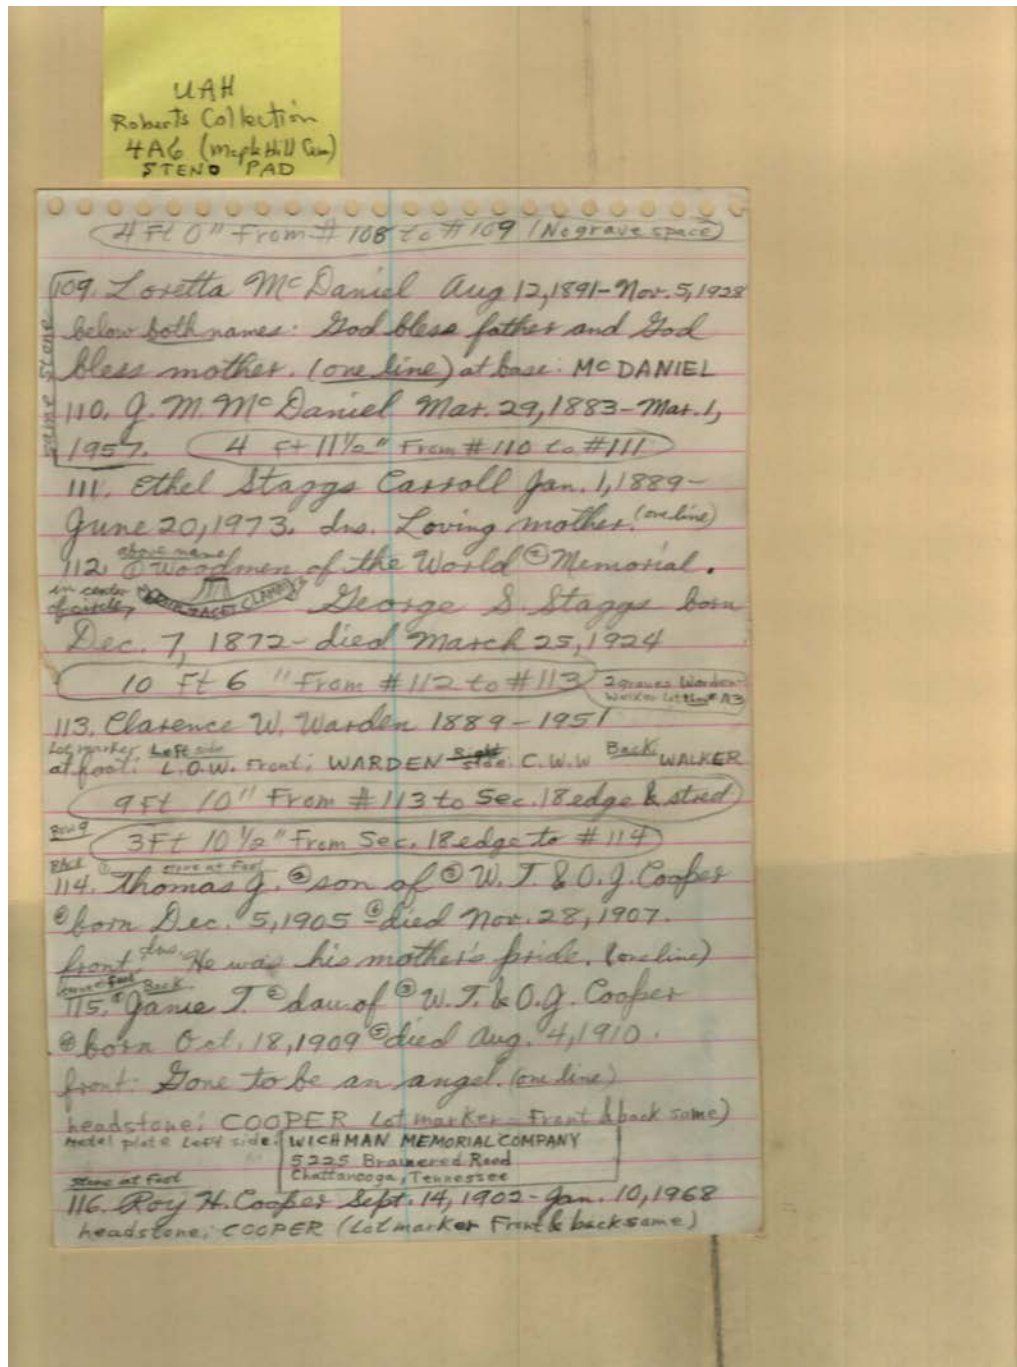 UAH
Roberts Collection
4A6 (Maple Hill Cem)
STENO PAD
4 Ft 0" From # 108 to # 109 (No grave space)
same stone
109. Loretta McDaniel Aug 12, 1891-Nov. 5, 1928
below both names: God bless father and God
bless mother. (one line) at base: McDANIEL
110. J. M. McDaniel Mar. 29, 1883-Mar. 1,
1957. 4 Ft 11½" From #110 to #111
111. Ethel Staggs Carroll Jan. 1, 1889-
June 20, 1973. Ins. Loving mother. (one line)
above name
112. ① Woodmen of the World ② Memorial.
in center
of circle, DUM TACET CLAMAT George S. Staggs born
Dec. 7, 1872- died March 25, 1924
10 Ft 6" From #112 to #113 2 graves Warden-
Walker lot A3
113. Clarence W. Warden 1889-1951
Lot marker Left side Right Back
at foot: L.O.W. Front: WARDEN side: C.W.W WALKER
9 Ft 10" From #113 to Sec. 18 edge & street
Row 9 3 Ft 10½" From Sec. 18 edge to #114
BACK ① stone at foot
114. Thomas J. ② son of ③ W. T. & O. J. Cooper
④ born Dec. 5, 1905 ⑥ died Nov. 28, 1907.
front Ins. He was his mother's pride. (one line)
stone at foot Back
115. ① Janie T. ② dau. of ③ W. T. & O. J. Cooper
④ born Oct. 18, 1909 ⑤ died Aug. 4, 1910.
front: Gone to be an angel. (one line)
headstone: COOPER Lot marker - Front & back same)
Metal plate Left side: WICHMAN MEMORIAL COMPANY
5225 Brainered Road
Chattanooga, Tennessee
stone at foot
116. Roy H. Cooper Sept. 14, 1902-Jan. 10, 1968
headstone: COOPER (Lot marker Front & back same)